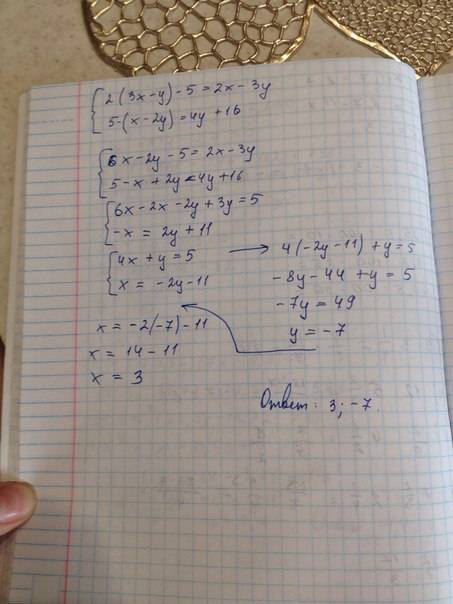 { 2(3x-y)-5=2x-3y
5-(x-2y)=4y+16
{ 6x-2y-5=2x-3y
5-x+2y=4y+16
{ 6x-2x-2y+3y=5
-x = 2y+11
{ 4x+y=5 → 4(-2y-11)+y=5
x = -2y-11
-8y-44+y=5
-7y=49
y=-7
x=-2(-7)-11
x=14-11
x=3
Ответ: 3; -7